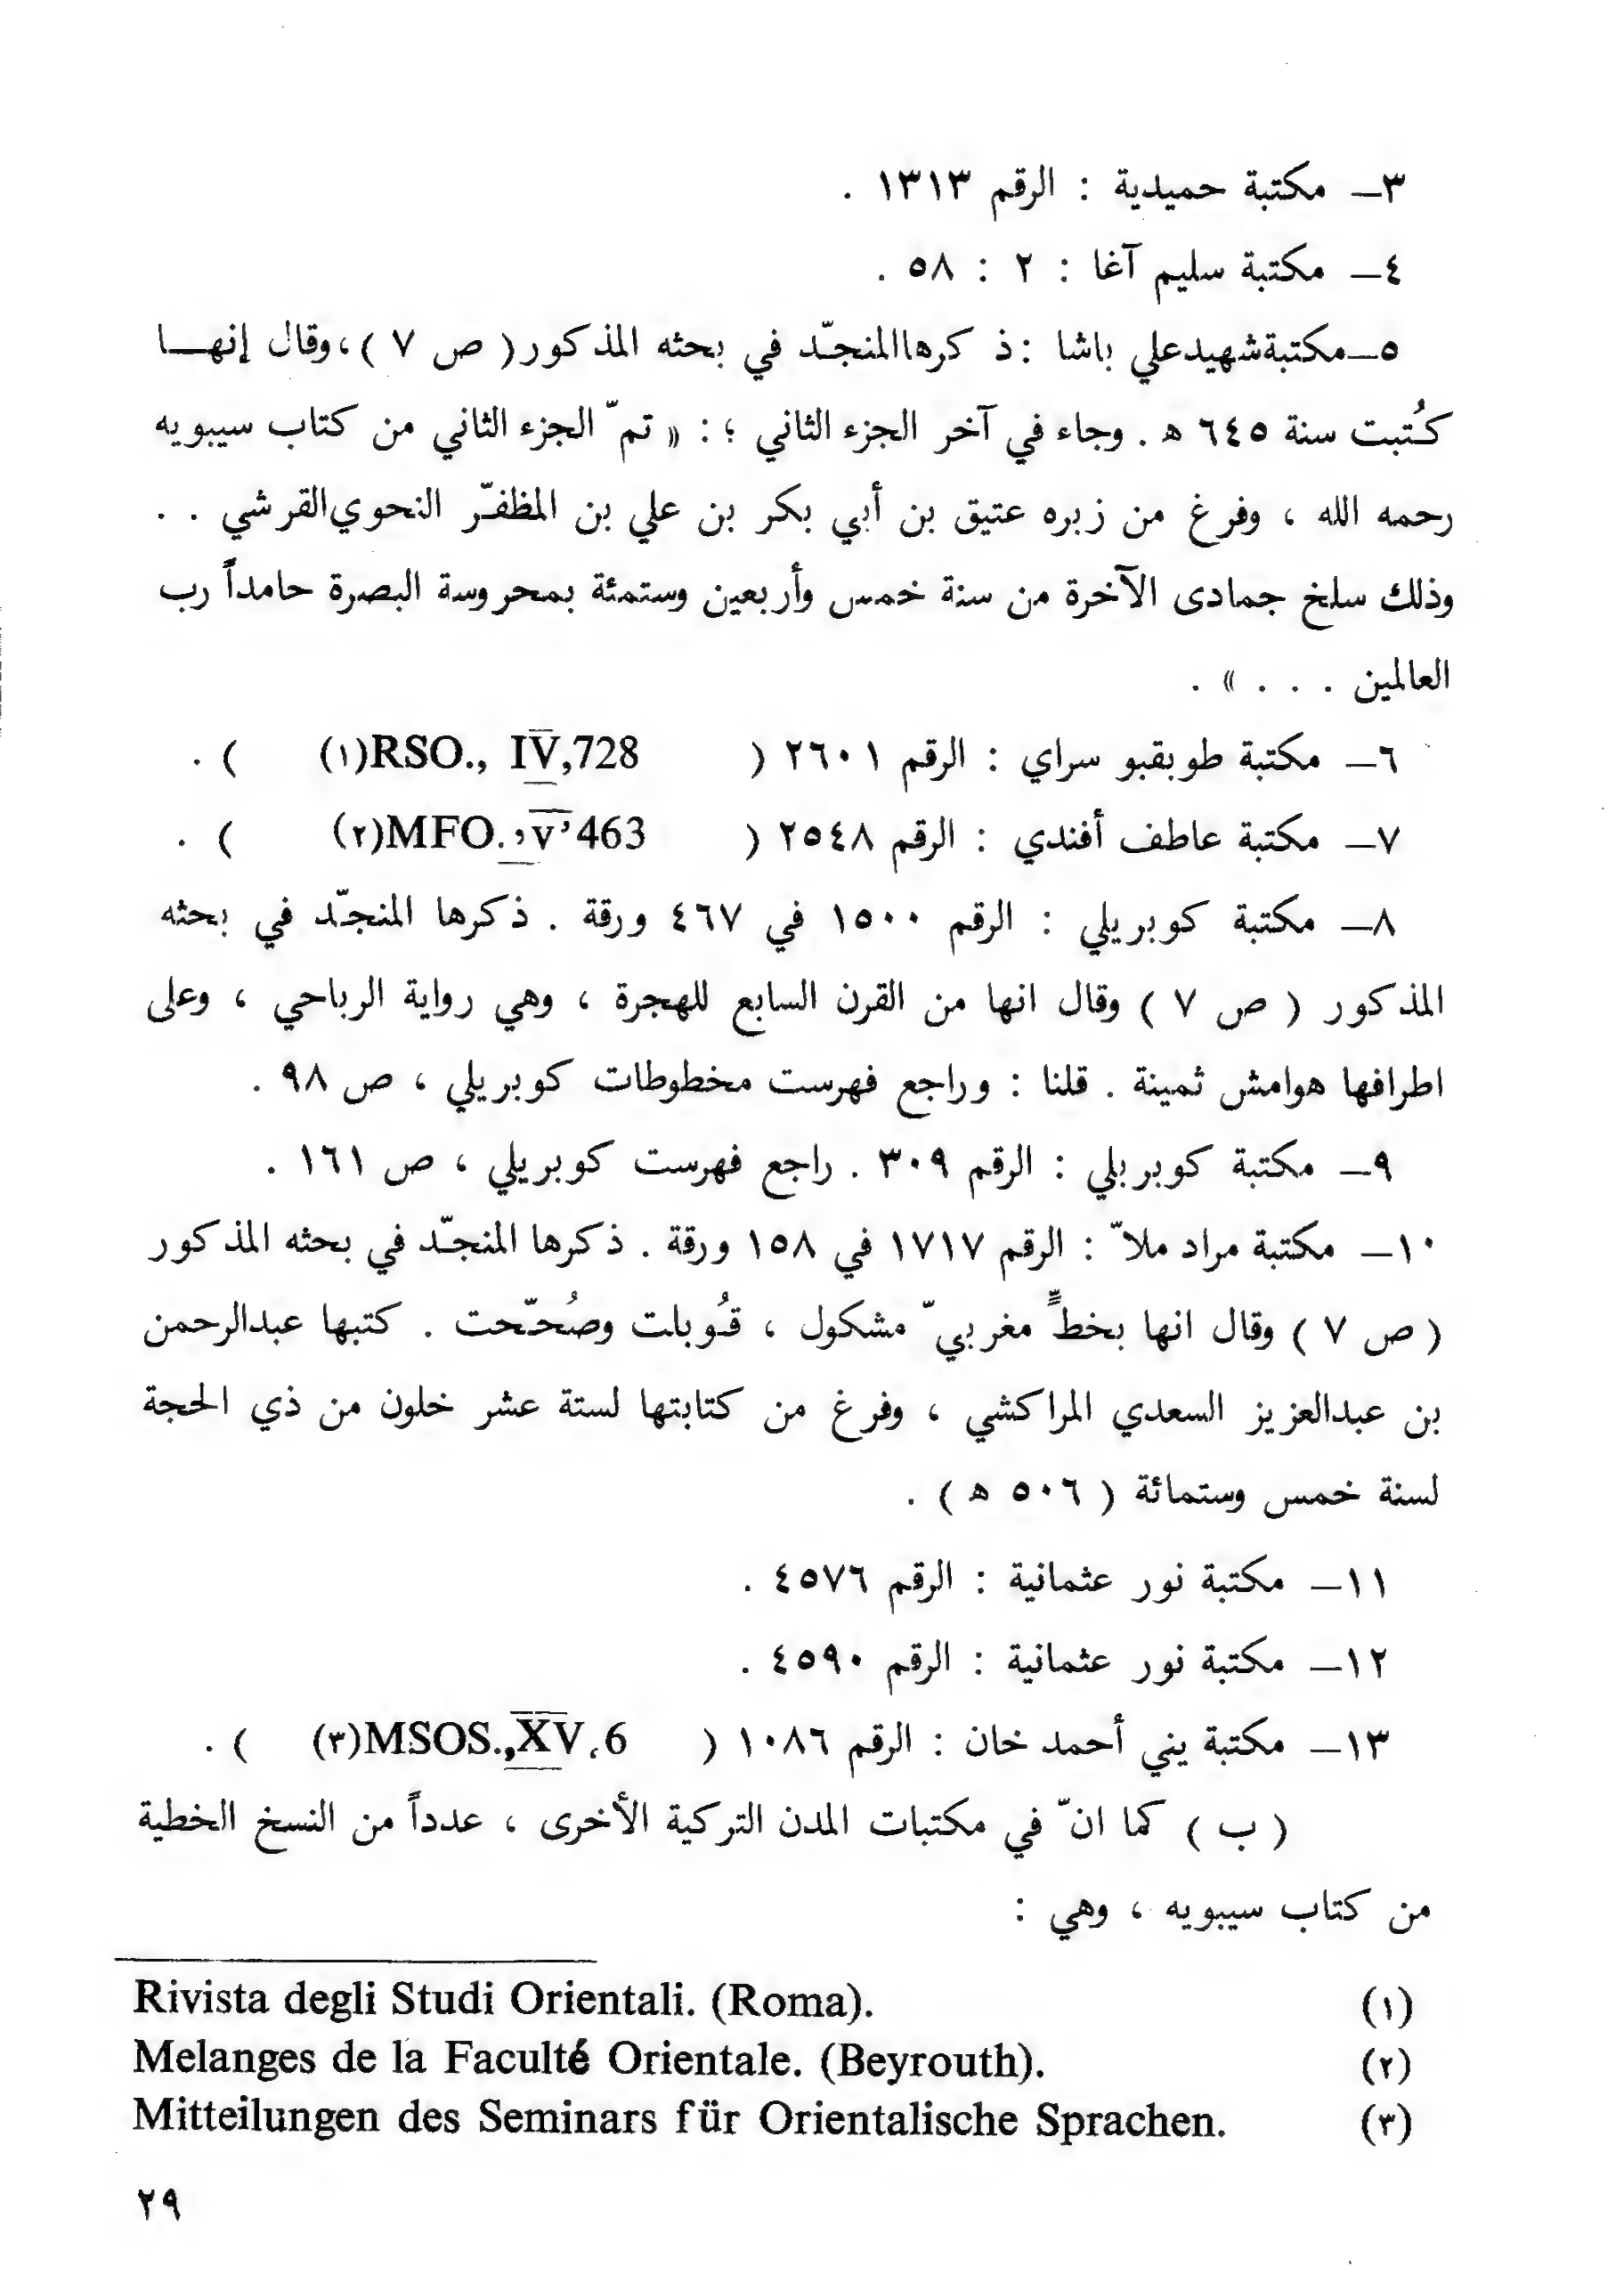 ٣ــ مكتبة حميدية : الرقم ١٣١٣ .
٤ــ مكتبة سليم آغا : ٢ : ٥٨ .
٥ــ مكتبة شهيد علي باشا : ذكرها المنجّد في بحثه المذكور ( ص ٧ ) ، وقال إنهــا
كُتبت سنة ٦٤٥ ه . وجاء في آخر الجزء الثاني ؛ : « تمّ الجزء الثاني من كتاب سيبويه
رحمه الله ، وفرغ من زبره عتيق بن أبي بكر بن علي بن المظفّر النحوي القرشي . .
وذلك سلخ جمادى الآخرة من سنة خمس وأربعين وستمئة بمحروسة البصرة حامداً رب
العالمين . . . » .
٦ــ مكتبة طوبقبو سراي : الرقم ٢٦٠١ ( RSO., IV,728(١) ) .
٧ــ مكتبة عاطف أفندي : الرقم ٢٥٤٨ ( MFO., V, 463(٢) ) .
٨ــ مكتبة كوبريلي : الرقم ١٥٠٠ في ٤٦٧ ورقة . ذكرها المنجّد في بحثه
المذكور ( ص ٧ ) وقال انها من القرن السابع للهجرة ، وهي رواية الرباحي ، وعلى
اطرافها هوامش ثمينة . قلنا : وراجع فهرست مخطوطات كوبريلي ، ص ٩٨ .
٩ــ مكتبة كوبربلي : الرقم ٣٠٩ . راجع فهرست كوبريلي ، ص ١٦١ .
١٠ــ مكتبة مراد ملاّ : الرقم ١٧١٧ في ١٥٨ ورقة . ذكرها المنجّد في بحثه المذكور
( ص ٧ ) وقال انها بخطٍّ مغربيّ مشكول ، قُوبلت وصُحّحت . كتبها عبدالرحمن
بن عبدالعزيز السعدي المراكشي ، وفرغ من كتابتها لستة عشر خلون من ذي الحجة
لسنة خمس وستمائة ( ٥٠٦ ه ) .
١١ــ مكتبة نور عثمانية : الرقم ٤٥٧٦ .
١٢ــ مكتبة نور عثمانية : الرقم ٤٥٩٠ .
١٣ــ مكتبة يني أحمد خان : الرقم ١٠٨٦ ( MSOS.,XV,6(٣) ) .
( ب ) كما انّ في مكتبات المدن التركية الأخرى ، عدداً من النسخ الخطية
من كتاب سيبويه ، وهي :
(١) Rivista degli Studi Orientali. (Roma).
(٢) Melanges de la Faculté Orientale. (Beyrouth).
(٣) Mitteilungen des Seminars für Orientalische Sprachen.
٢٩